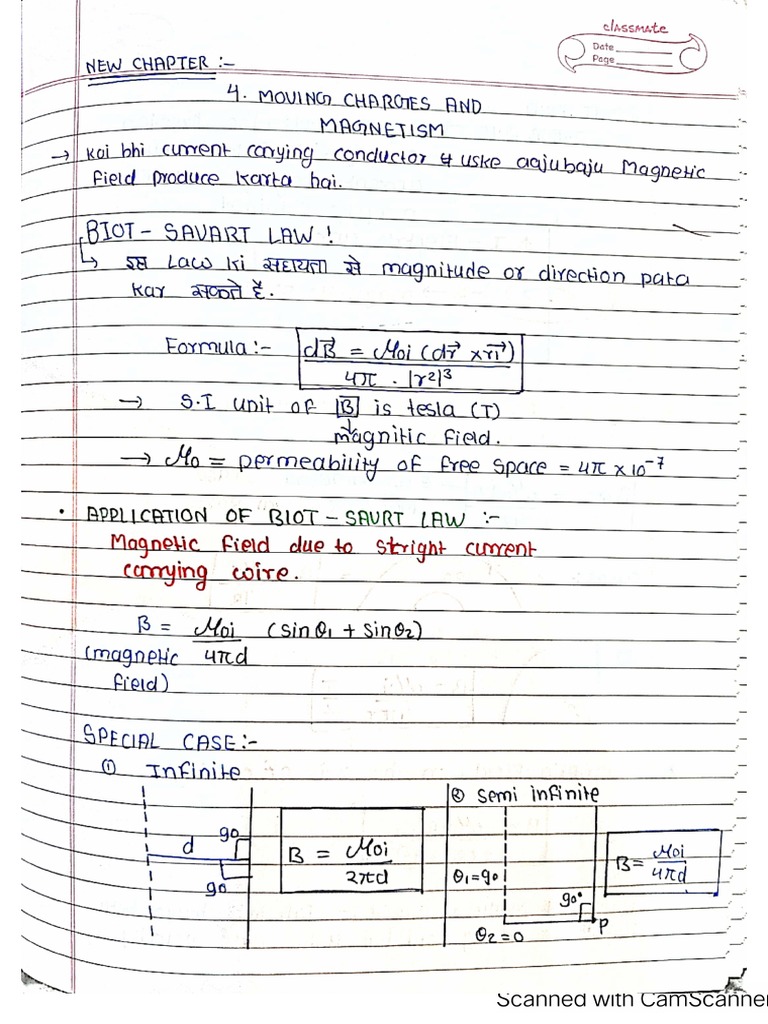 classmate
Date
Page
NEW CHAPTER :-
4. MOVING CHARGES AND
MAGNETISM
→ Koi bhi current carrying conductor & uske aajubaju Magnetic
field produce karta hai.
BIOT - SAVART LAW !
↳ इस Law ki सहायता से magnitude or direction pata
kar सकते है.
Formula :- dB⃗ = μ0i (dr⃗ × r⃗)
4π . |r2|3
→ S.I unit of |B| is tesla (T)
magnitic field.
→ μ0 = permeability of free space = 4π × 10^-7
• APPLICATION OF BIOT - SAVRT LAW :-
Magnetic field due to stright current
carrying wire.
B = μ0i (sinθ1 + sinθ2)
(magnetic 4πd
field)
SPECIAL CASE :-
① Infinite
② semi infinite
d 90
90
B = μ0i
2πd
θ1=90
90°
θ2=0
P
B= μ0i
4πd
Scanned with CamScanner